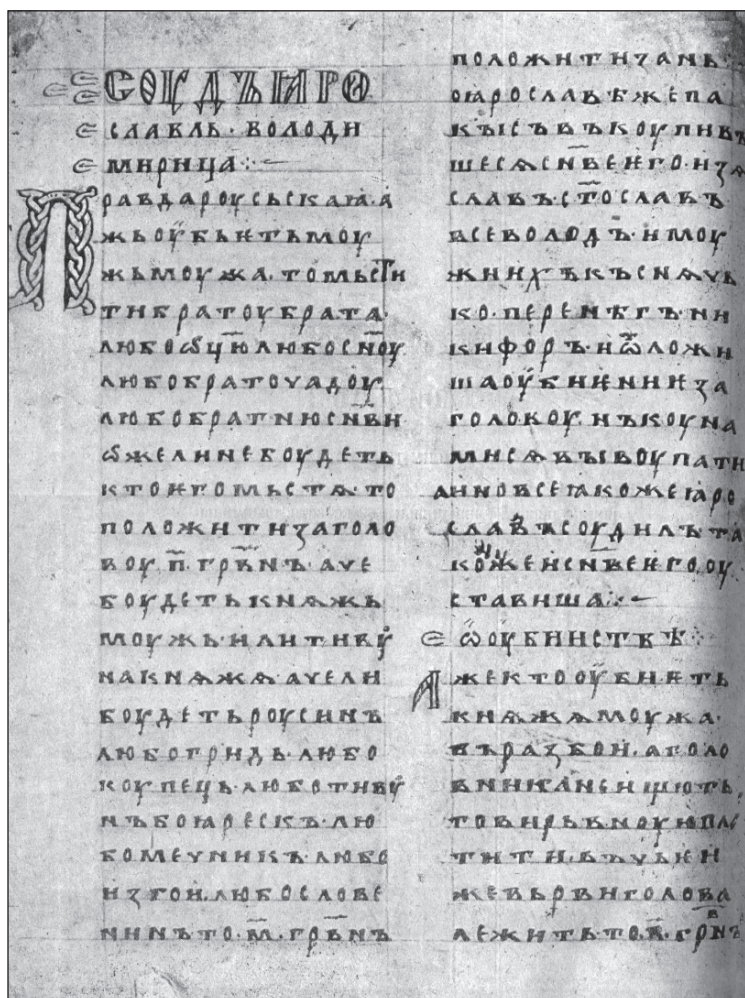 СОУДЪ ꙖРО
СЛАВЛЬ · ВОЛОДИ
МИРИЦА
ПРАВДА РОУСЬСКАꙖ · А
ЖЬ ОУБЬѤТЬ МОУ
ЖЬ МОУЖА · ТО МЬСТИ
ТИ БРАТОУ БРАТА ·
ЛЮБО ѾЦЮ ЛЮБО СН҃ОУ
ЛЮБО БРАТОЧАДОУ
ЛЮБО БРАТНЮ СН҃ВИ
ѾЖЕ ЛИ НЕ БОУДЕТЬ
КТО ѤГО МЬСТѦ · ТО
ПОЛОЖИТИ ЗА ГОЛО
ВОУ · П҃ · ГРВ҃НЪ · АЧЕ
БОУДЕТЬ КНѦЖЬ
МОУЖЬ · ИЛИ ТИВУ
НА КНѦЖѦ · АЧЕ ЛИ
БОУДЕТЬ РОУСИНЪ
ЛЮБО ГРИДЬ · ЛЮБО
КОУПЕЦЬ · ЛЮБО ТИВУ
НЪ БОꙖРЕСКЪ · ЛЮ
БО МЕЧНИКЪ · ЛЮБО
ИЗГОИ · ЛЮБО СЛОВЕ
НИНЪ ТО · М҃ · ГРВ҃НЪ
ПОЛОЖИТИ ЗА НЬ ·
ПО ꙖРОСЛАВѢ ЖЕ ПА
КЫ СЪВЪКОУПИВЪ
ШЕСѦ СН҃ВЕ ѤГО · ИЗѦ
СЛАВЪ · СТ҃ОСЛАВЪ
ВСЕВОЛОДЪ · И МОУ
ЖИ ИХЪ КЪСНѦЧЬ
КО · ПЕРЕНѢГЪ · НИ
КИФОРЪ · И ѾЛОЖИ
ША ОУБИЕНИѤ ЗА
ГОЛОВОУ · НЪ КОУНА
МИ СѦ ВЫКОУПАТИ
А ИНО ВСЕ ꙖКОЖЕ ꙖРО
СЛАВЪ СОУДИЛЪ ТА
КОЖЕ И СН҃ВЕ ѤГО ОУ
СТАВИША
Ѡ ОУБИИСТВѢ
АЖЕ КТО ОУБИѤТЬ
КНѦЖѦ МОУЖА ·
ВЪ РАЗБОИ · А ГОЛО
ВНИКА НЕ ИЩЮТЬ
ТО ВИРЬВНОУЮ ПЛА
ТИТИ · ВЪ ЧЬѤИ
ЖЕ ВЬРВИ ГОЛОВА
ЛЕЖИТЬ · ТО · П҃ · ГРВ҃НЪ